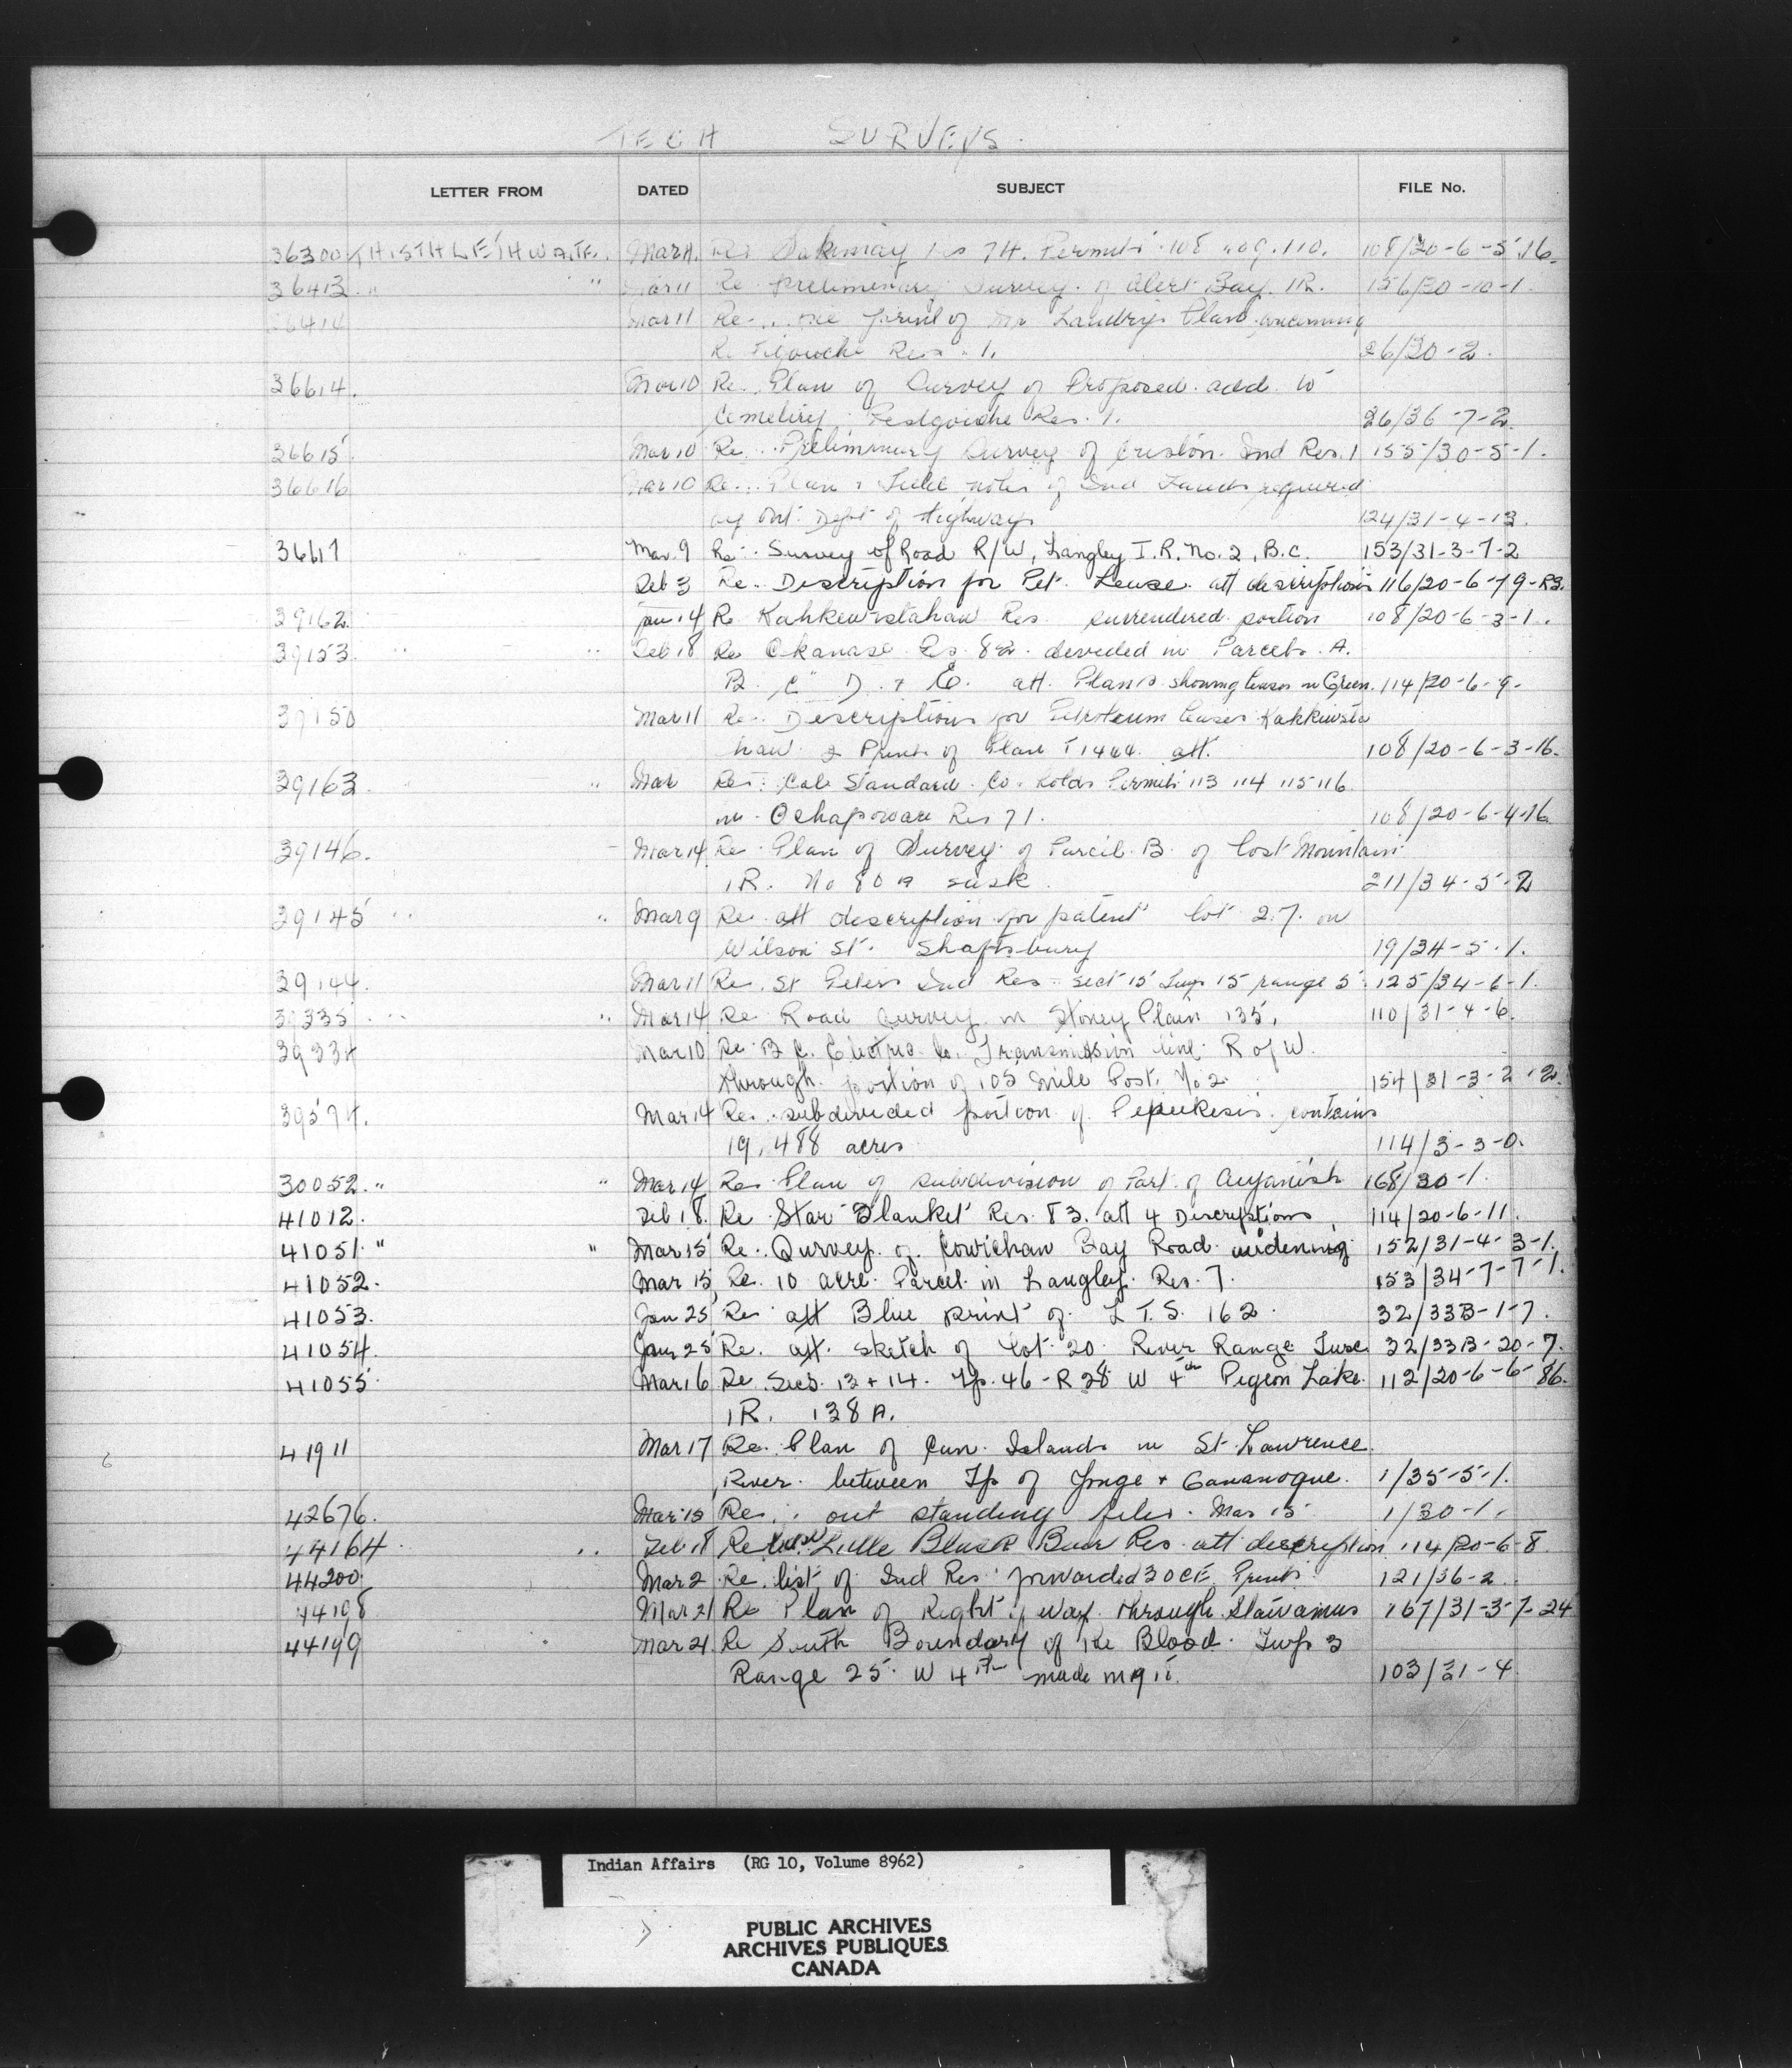 TECH SURVEYS.
LETTER FROM DATED SUBJECT FILE No.
36300 THISTHLETHWAITE. Mar 11 Re Sakimay Res 74. Permits 108 109. 110. 108/20-6-5-16.
36413 " " Mar 11 Re preliminary Survey of Alert Bay. IR. 156/30-10-1.
36414 Mar 11 Re one print of Mr Landry's Plan concerning
Restigouche Res. 1. 26/30-2.
36614. Mar 10 Re. Plan of Survey of Proposed add to
Cemetery Restgouche Res. 1. 26/36-7-2.
36615 Mar 10 Re. Preliminary Survey of Creston Ind Res. 1 155/30-5-1.
36616 Mar 10 Re. Plan & Field notes of Ind Lands required
by Ont. Dept of Highways 124/31-4-13.
36617 Mar. 9 Re. Survey of Road R/W, Langley I.R. No. 2, B.C. 153/31-3-7-2
Feb 3 Re. Description for Pet. Lease att descriptions 116/20-6-19-R3.
39162. Jan 14 Re Kahkewistahaw Res surrendered portion 108/20-6-3-1.
39153 " " Feb 18 Re Okanase Res 82. devided in Parcels. A.
B. C" D. & E. att. Plans showing leases in Green. 114/20-6-9-
39150 Mar 11 Re. Descriptions for Petroleum leases Kahkewista
haw & Prints of Plan T1444. att. 108/20-6-3-16.
39163 " Mar Re: Cal Standard Co. holds Permits 113 114 115 116
in Ochapowace Res 71. 108/20-6-4-16
39146. Mar 14 Re Plan of Survey of Parcel B. of Last Mountain
IR. No 80 A Sask. 211/34-5-2
39145 " " Mar 9 Re att description for patent lot 27. on
Wilson St. Shaftsbury 19/34-5-1.
39144. Mar 11 Re. St Peters Ind Res - Sect 15 Twp 15 range 5. 125/34-6-1.
39335 " " Mar 14 Re Road Survey in Stoney Plain 135. 110/31-4-6.
39334 Mar 10 Re B C. Electric Co. Transmission line R of W.
through portion of 105 Mile Post. No 2 154/31-3-2-2.
39574. Mar 14 Re. subdivided portion of Pepeekesis contains
19,488 acres 114/3-3-0.
30052. " " Mar 14 Re Plan of subdivision of Part of Aiyanish 168/30-1.
41012. Feb 18. Re Star Blanket Res. 83. att 4 Descriptions 114/20-6-11.
41051. " " Mar 15 Re. Survey of Cowichan Bay Road widening 152/31-4-3-1.
41052. Mar 15 Re. 10 acre Parcel in Langley Res. 7. 153/34-7-7-1.
41053. Jan 25 Re att Blue print of L.T.S. 162. 32/33B-1-7.
41054. Jan 25 Re. att. sketch of Lot 20 River Range Tusc 32/33B-20-7.
41055 Mar 16 Re Secs. 13 + 14. Tp. 46-R 28 W 4th Pigeon Lake. 112/20-6-6-86.
IR. 138 A.
41911 Mar 17 Re. Plan of Can. Islands in St. Lawrence
River between Tp of Yonge + Gananoque. 1/35-5-1.
42676. Mar 15 Re. out standing files. Mar 15 1/30-1.
44164 " Feb 18 Re Little Black Bear Res att description 114/20-6-8.
44200 Mar 2 Re. list of Ind Res forwarded Prints 121/36-2.
44198 Mar 21 Re Plan of Right of Way through Stawamus 167/31-3-7-24
44199 Mar 21 Re South Boundary of the Blood. Twp 3
Range 25. W 4th made in 1911. 103/31-4
Indian Affairs (RG 10, Volume 8962)
PUBLIC ARCHIVES
ARCHIVES PUBLIQUES
CANADA